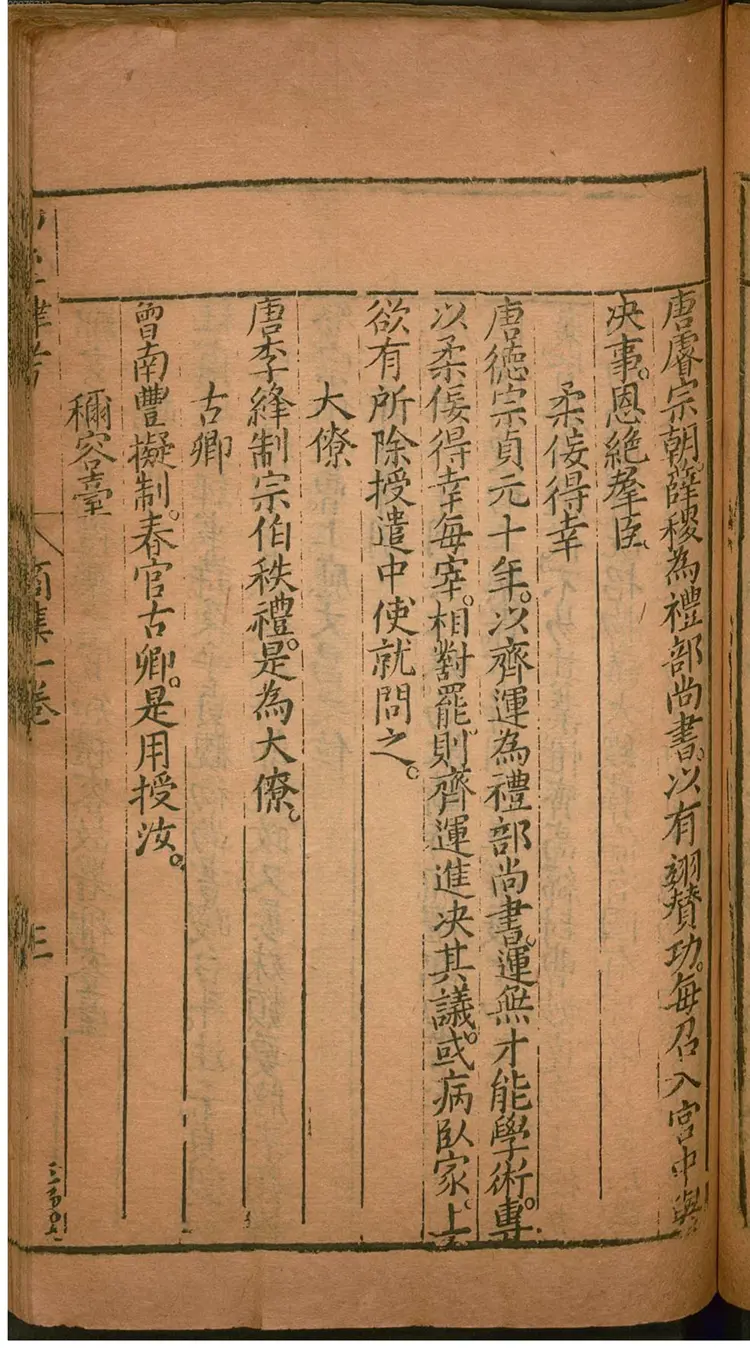 唐睿宗朝。薛稷為禮部尚書。以有翊贊功。每召入宮中與
决事。恩絶羣臣。
柔侫得幸
唐德宗貞元十年。以齊運為禮部尚書。運無才能學術。專
以柔侫得幸。每宰相對罷。則齊運進决其議。或病臥家。上
欲有所除授。遣中使就問之。
大僚
唐李絳制宗伯秩禮。是為大僚。
古卿
曾南豐擬制。春官古卿。是用授汝。
穪容臺
集一卷
三